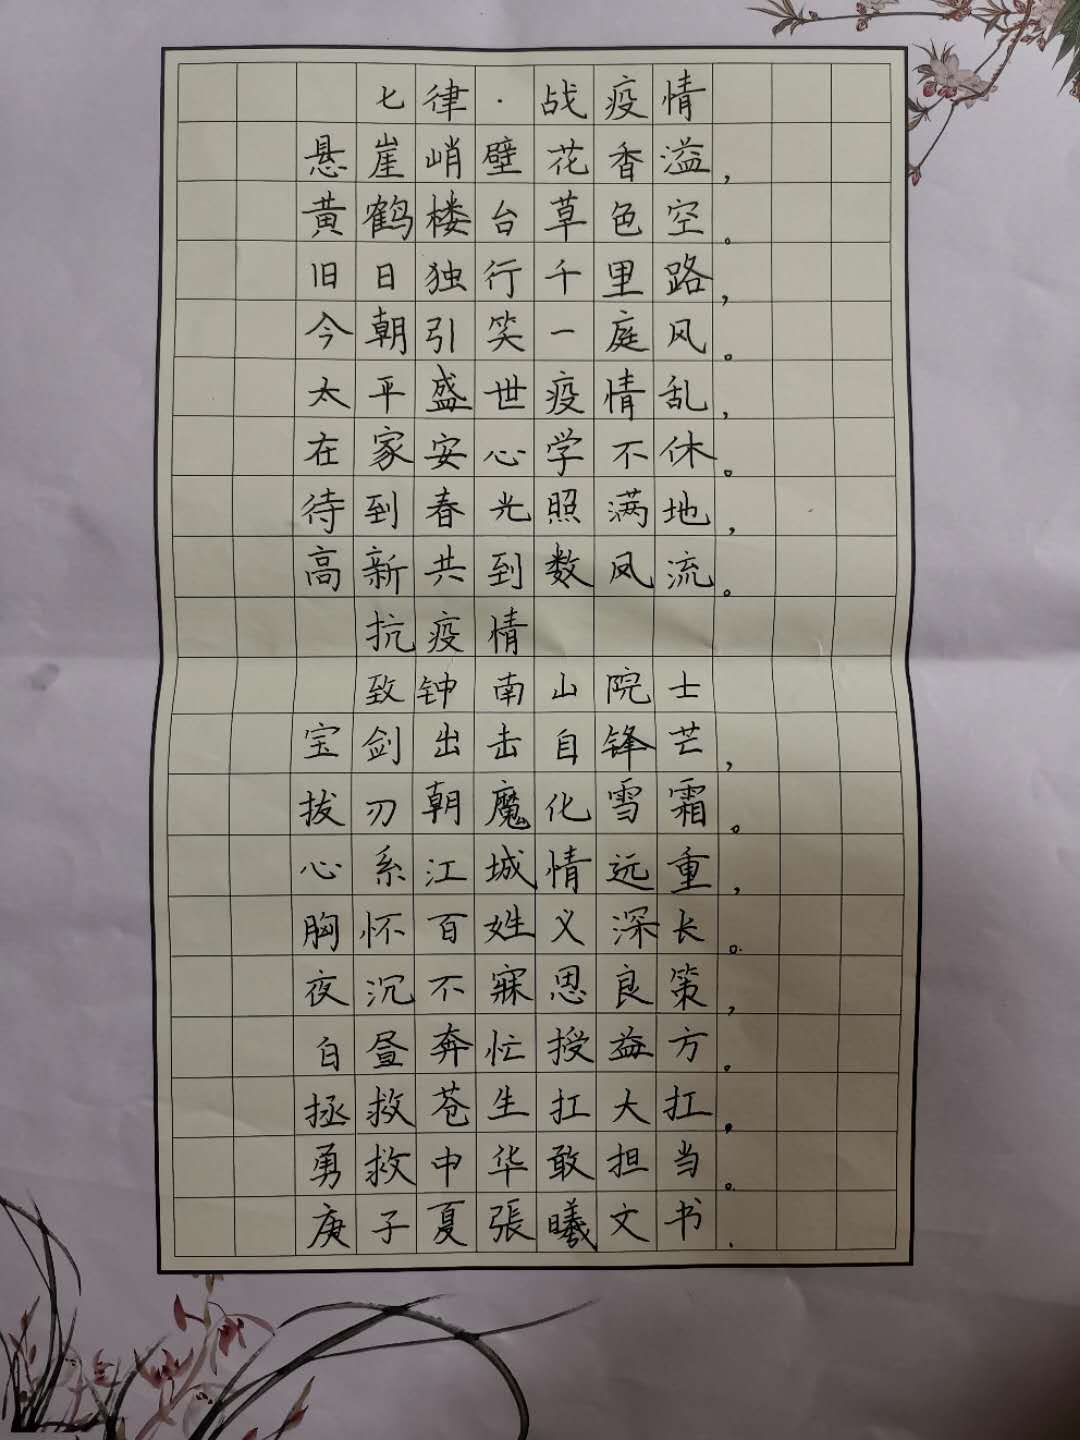 七律·战疫情
悬崖峭壁花香溢，
黄鹤楼台草色空。
旧日独行千里路，
今朝引笑一庭风。
太平盛世疫情乱，
在家安心学不休。
待到春光照满地，
高新共到数风流。
抗疫情
致钟南山院士
宝剑出击自锋芒，
拔刃朝魔化雪霜。
心系江城情远重，
胸怀百姓义深长。
夜沉不寐思良策，
白昼奔忙授益方。
拯救苍生扛大扛，
勇救中华敢担当。
庚子夏張曦文书.